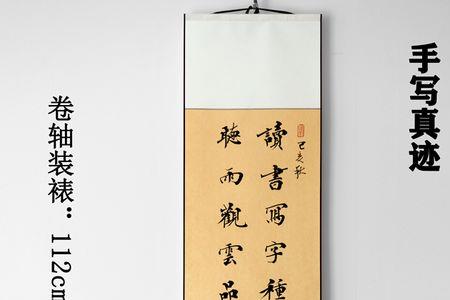 手写真迹
己亥秋
讀書寫字種
聽雨觀雲品
卷轴装裱：112cm